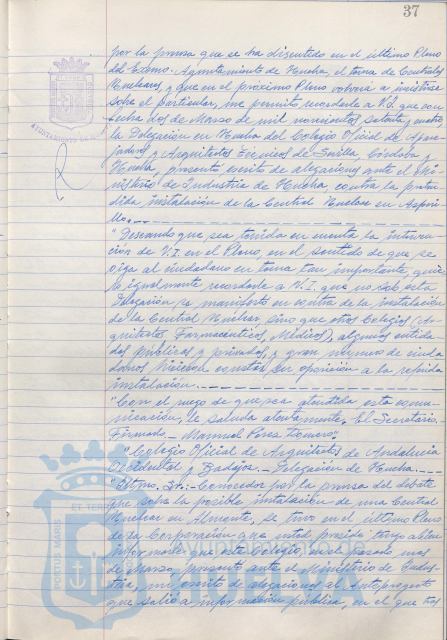 37
por la prensa que se ha discutido en el último Pleno
del Excmo. Ayuntamiento de Huelva, el tema de Centrales
Nucleares, y que en el próximo Pleno volverá a insistirse
sobre el particular, me permito recordarle a V.I. que con
fecha dos de Marzo de mil novecientos setenta y cuatro
la Delegación en Huelva del Colegio Oficial de Apare-
jadores y Arquitectos Técnicos de Sevilla, Córdoba y
Huelva, presentó escrito de alegaciones ante el Mi-
nisterio de Industria de Huelva, contra la preten-
dida instalación de la Central Nuclear en Asperi-
llo.
"Deseando que sea tenida en cuenta la interven-
ción de V.I. en el Pleno, en el sentido de que se
oiga al ciudadano en tema tan importante, quie-
ro igualmente recordarle a V.I. que no sólo esta
Delegación se manifestó en contra de la instalación
de la Central Nuclear sino que otros Colegios (Ar-
quitectos, Farmacéuticos, Médicos), algunas entida-
des públicas y privadas, y gran número de ciuda-
danos hicieron constar su oposición a la referida
instalación.
"Con el ruego de que sea atendida esta comu-
nicación, le saluda atentamente. El Secretario.
Firmado.- Manuel Pérez
"Colegio Oficial de Arquitectos de Andalucía
Occidental y Badajoz.- Delegación de Huelva.
Conocedor por la prensa del debate
que sobre la posible instalación de una Central
Nuclear en Almonte, se tuvo en el último Pleno
de la Corporación que usted preside, tengo a bien
informarle que este Colegio, en el pasado mes
de Marzo, presentó ante el Ministerio de Indus-
tria, un escrito de alegaciones al Anteproyecto
que salió a información pública, en el que tras
AYUNTAMIENTO DE
PORTUS MARIS ET TERRAE
HUELVA